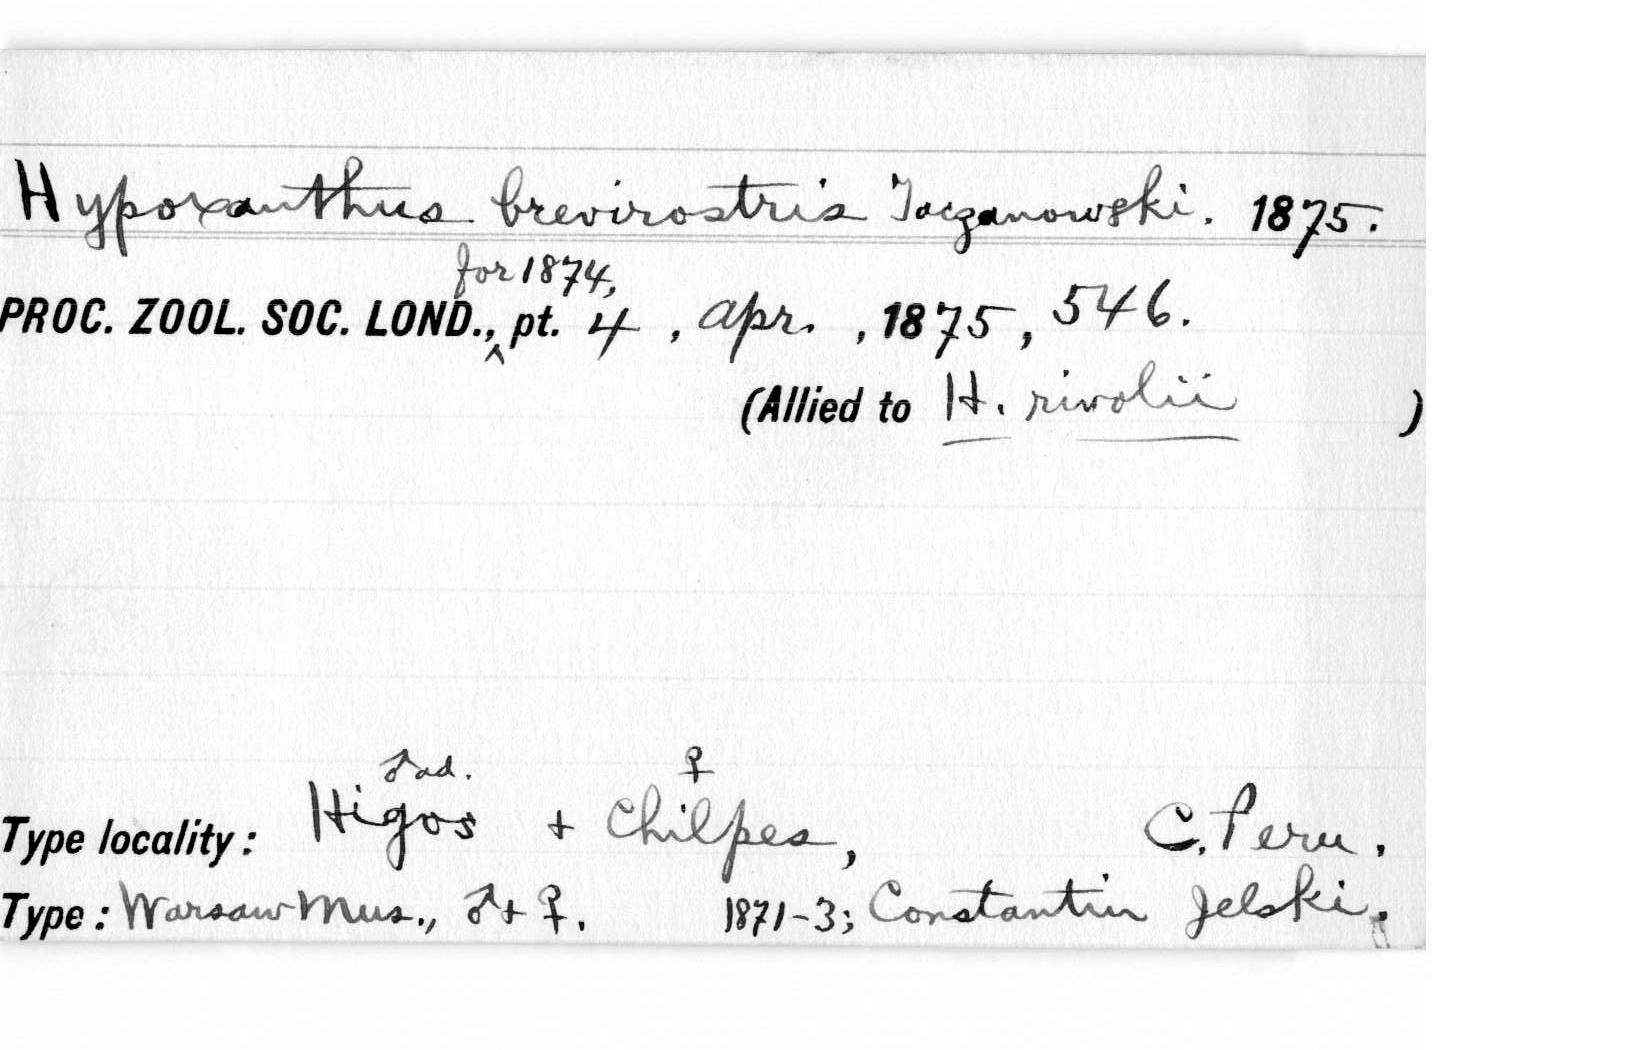 Hypoxanthus brevirostris Taczanowski. 1875.
for 1874,
PROC. ZOOL. SOC. LOND., ^ pt. 4, Apr., 1875, 546.
(Allied to H. rivolii)
♂ ad. ♀
Type locality: Higos + Chilpes, C. Peru.
Type: Warsaw Mus., ♂ + ♀. 1871-3; Constantin Jelski.